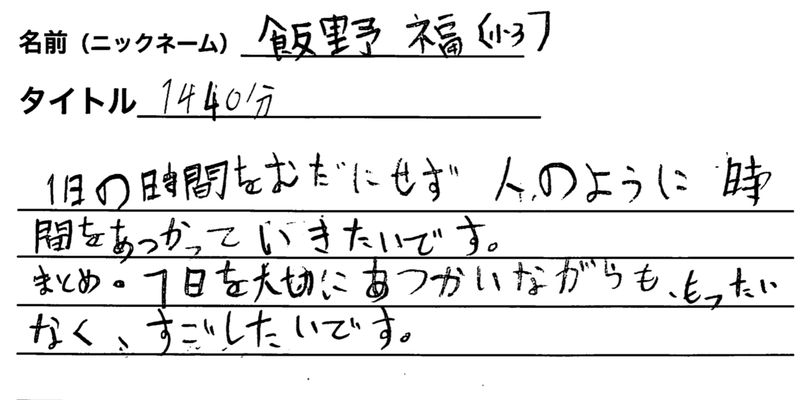 名前（ニックネーム） 飯野 福（小3）
タイトル 1440分
1日の時間をむだにせず 人のように 時
間をあつかって いきたいです。
まとめ。1日を大切にあつかいながらも、もったい
なく、すごしたいです。